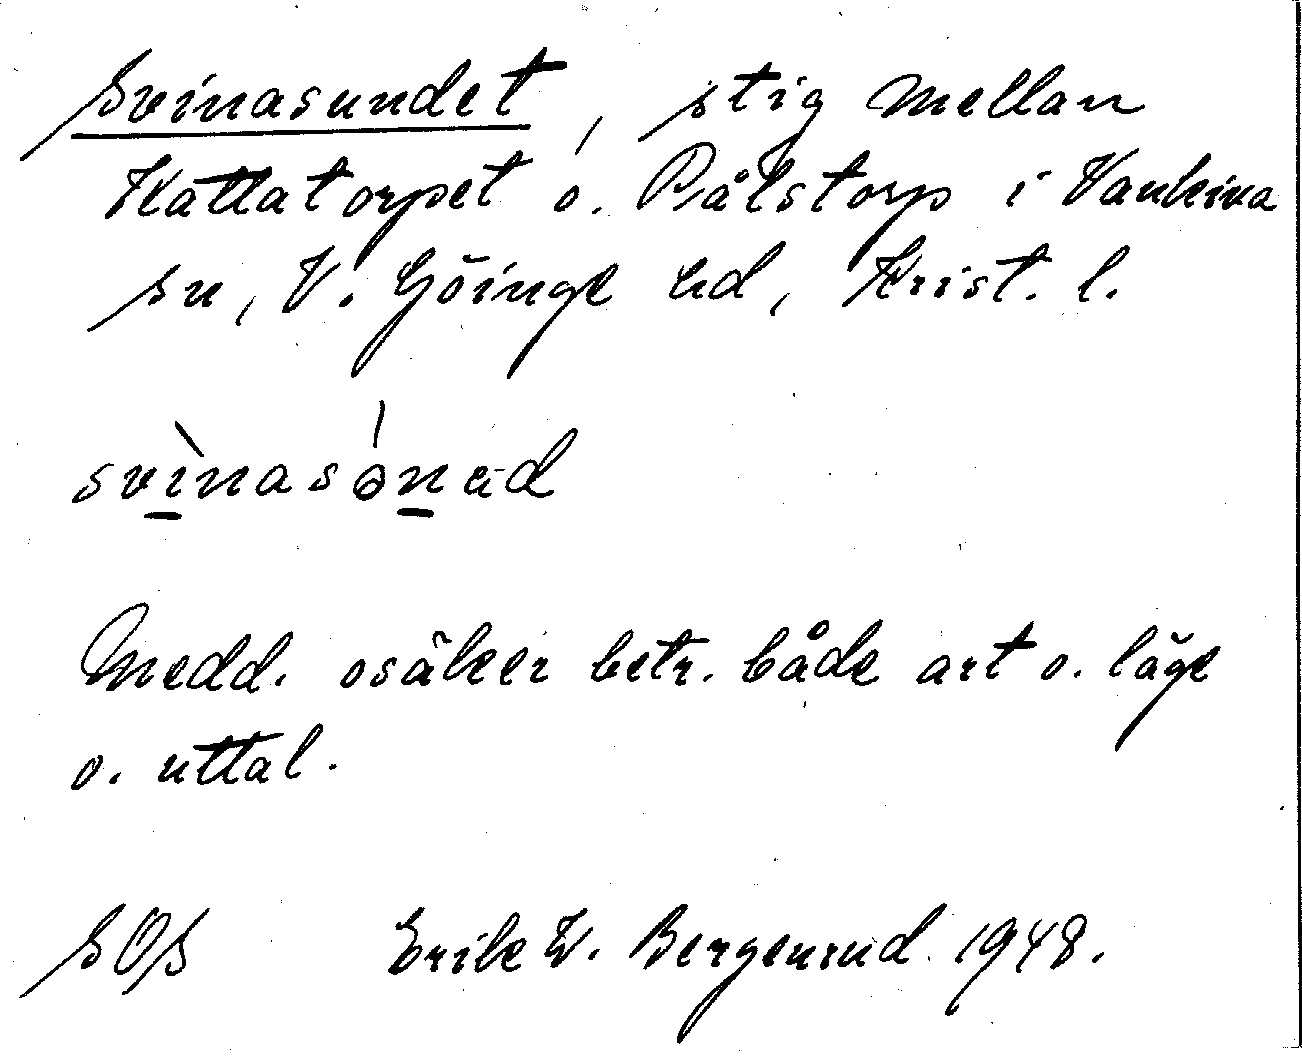 Svinasundet, stig mellan
Kattatorpet o. Pålstorp i Vankiva
sn, V. Göinge hd, Krist. l.
svìnasónäd
Medd. osäker betr. både art o. läge
o. uttal.
SOS Erik W. Bergenrud 1948.